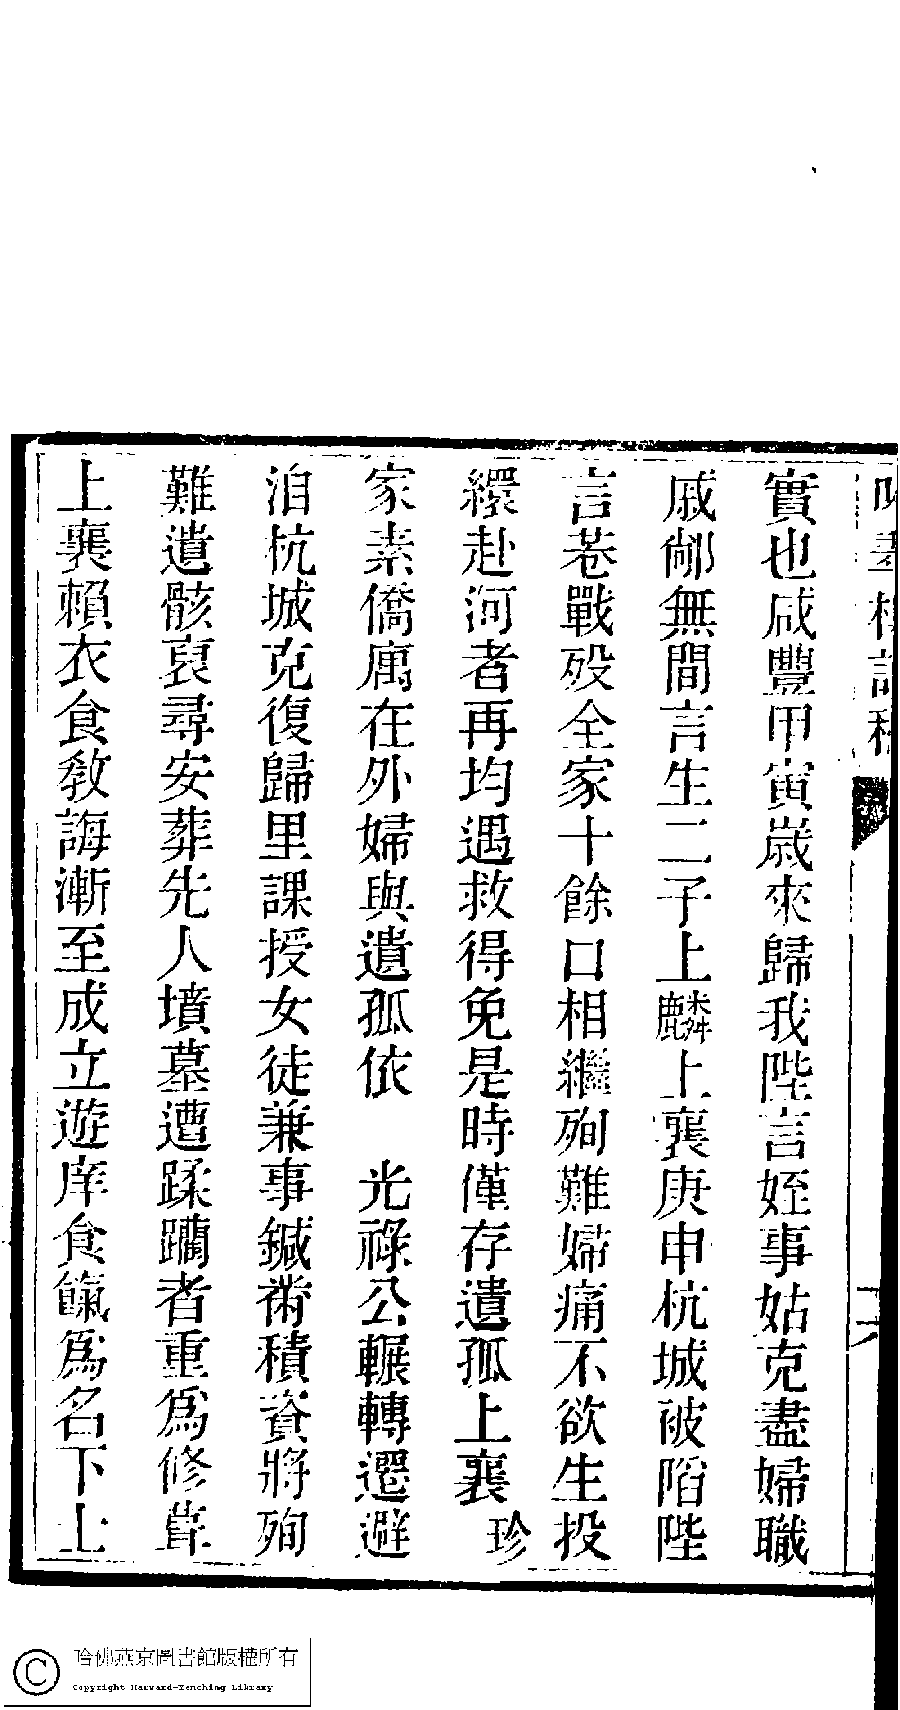 實也咸豐甲寅歲來歸我陛言姪事姑克盡婦職
戚鄉無間言生二子上麟上襄庚申杭城被陷陛
言巷戰歿全家十餘口相繼殉難婦痛不欲生投
繯赴河者再均遇救得免是時僅存遺孤上襄珍
家素僑寓在外婦與遺孤依　光祿公輾轉遷避
洎杭城克復歸里課授女徒兼事鍼黹積資將殉
難遺骸裒尋安葬先人墳墓遭蹂躪者重爲修葺
上襄賴衣食敎誨漸至成立遊庠食餼爲名下士
哈佛燕京圖書館版權所有
Copyright Harvard-Yenching Library